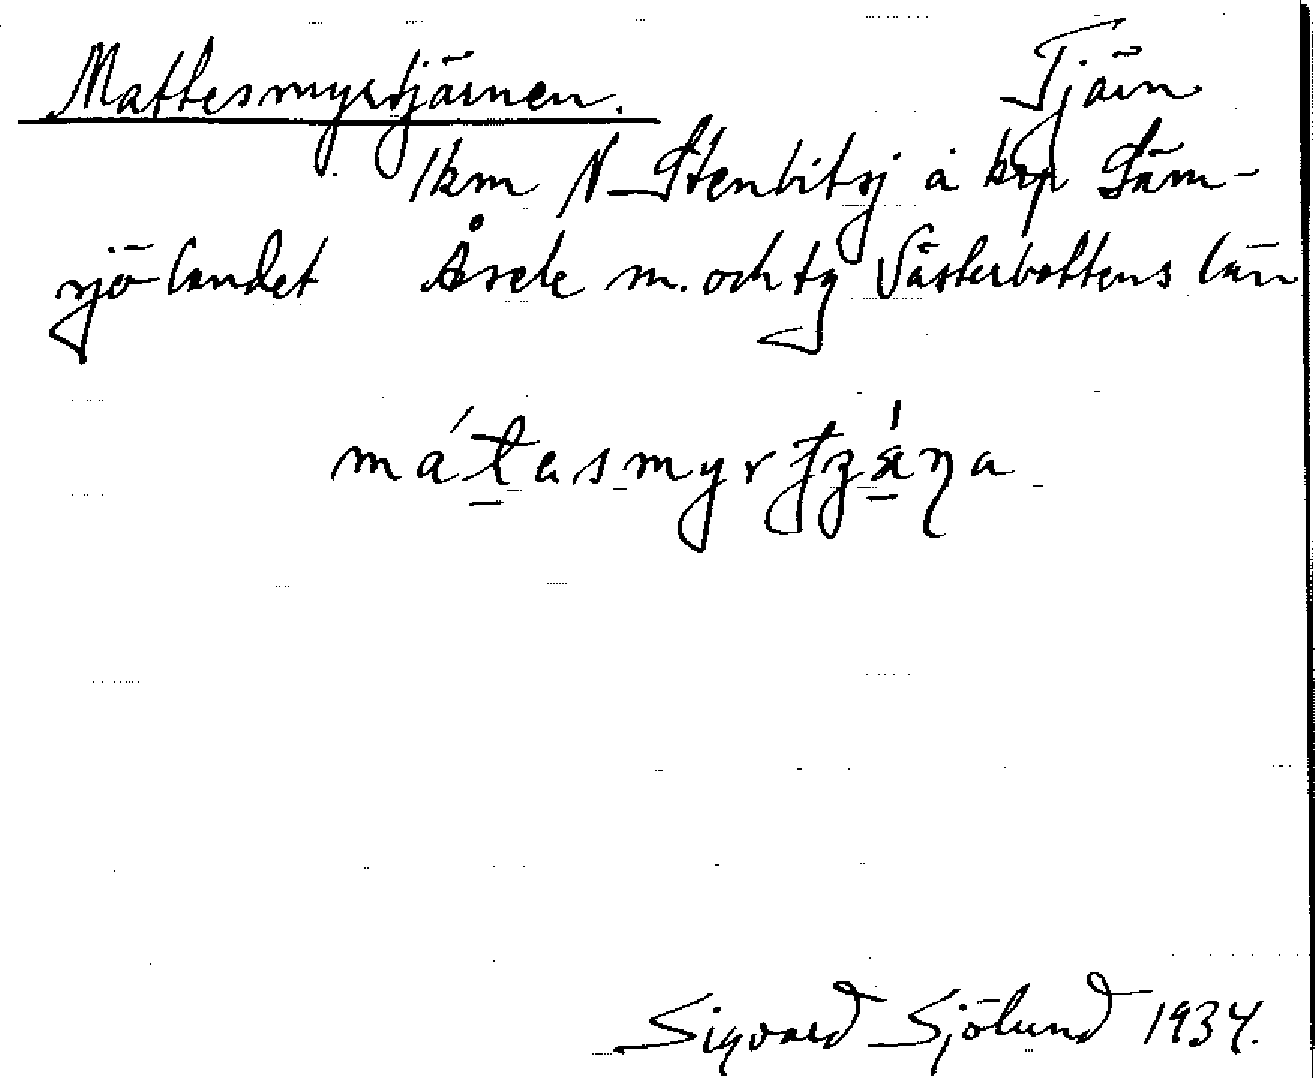 Mattesmyrtjärnen. Tjärn
1 km N Stenbitsj å krp Läm-
sjölandet Åsele sn. och tg Västerbottens län
mátasmyrtzäṇa
Sigvard Sjölund 1934.